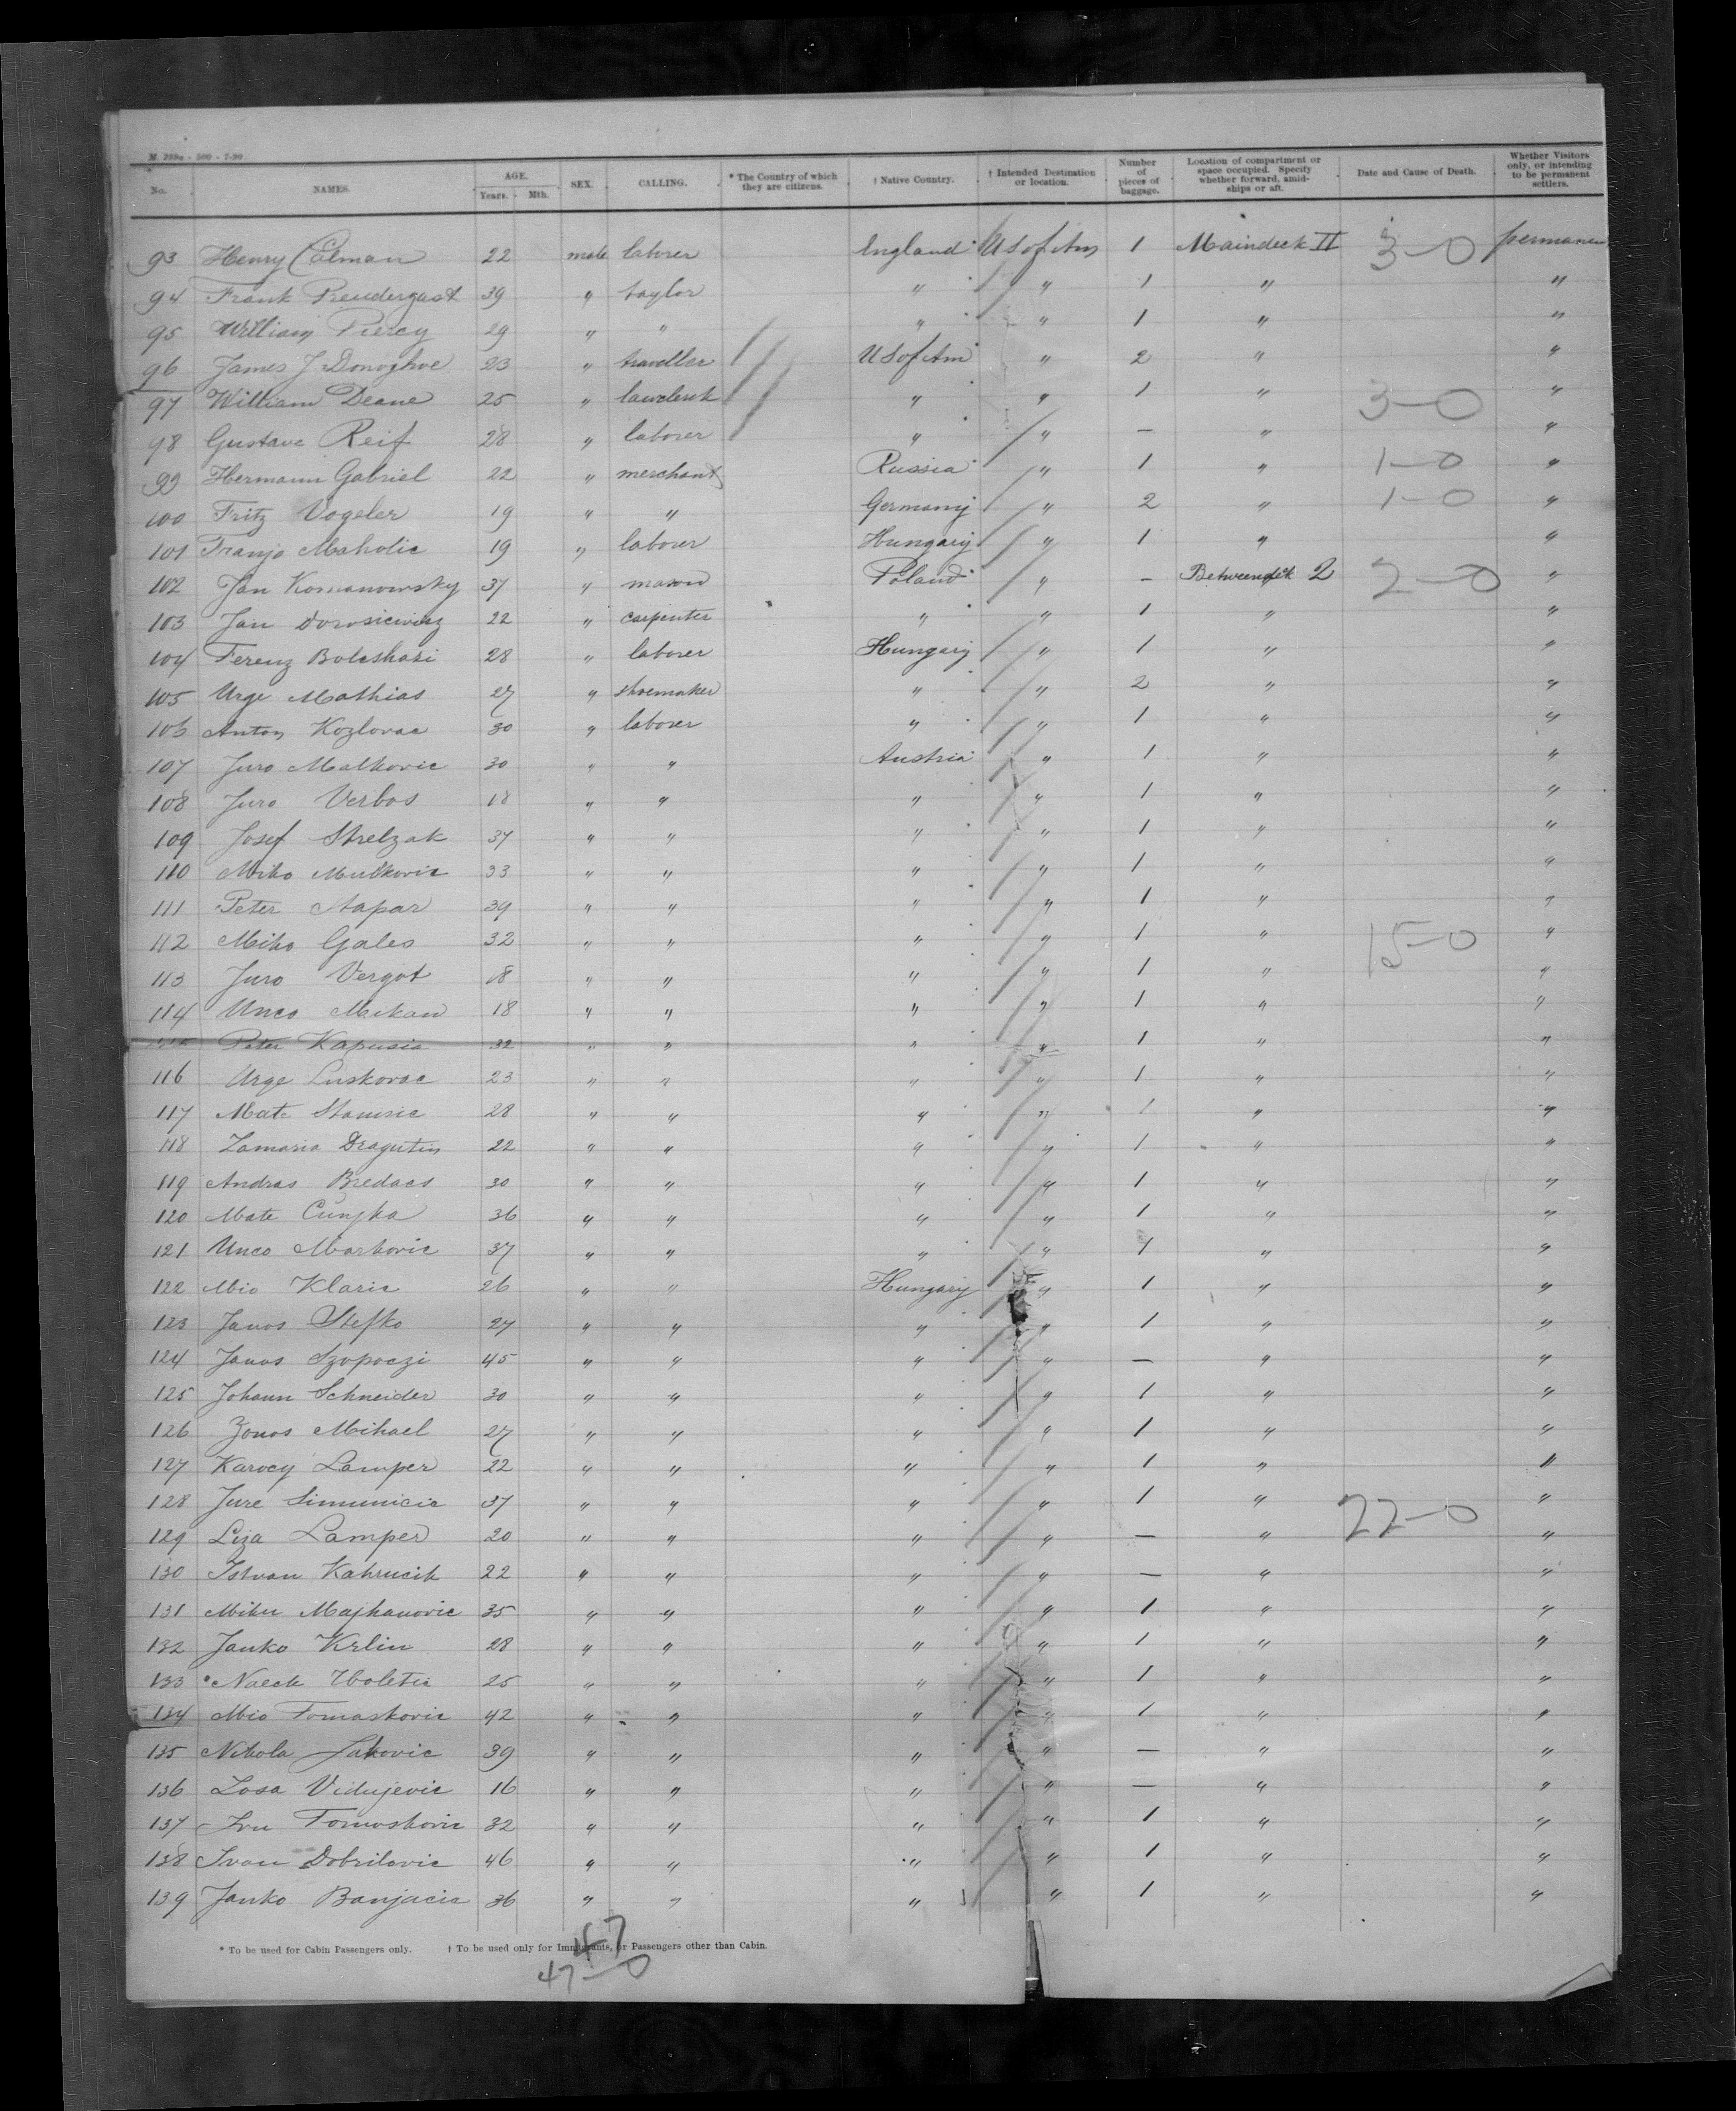 M. 298a - 500 - 7-90
No. NAMES. AGE. Years. Mth. SEX. CALLING. * The Country of which they are citizens. † Native Country. † Intended Destination or location. Number of pieces of baggage. Location of compartment or space occupied. Specify whether forward, amidships or aft. Date and Cause of Death. Whether Visitors only, or intending to be permanent settlers.
93 Henry Colman 22 male laborer England U S of Am 1 Maindeck II 3-0 permanen
94 Frank Prendergast 39 " taylor " " 1 " "
95 William Piercy 29 " " " " 1 " "
96 James J Donoghoe 23 " traveller U S of Am " 2 " "
97 William Deane 25 " lawclerk " " 1 " 3-0 "
98 Gustave Reif 28 " laborer " " — " "
99 Hermann Gabriel 22 " merchant Russia " 1 " 1-0 "
100 Fritz Vogeler 19 " " Germany " 2 " 1-0 "
101 Franjo Maholic 19 " laborer Hungary " 1 " "
102 Jan Komanowsky 37 " mason Poland " — Betweendek 2 2-0 "
103 Jan 22 " carpenter " " 1 " "
104 Ferenz Boleshasi 28 " laborer Hungary " 1 " "
105 Urge Mathias 27 " shoemaker " " 2 " "
106 Anton Kozlovac 30 " laborer " " 1 " "
107 Juro Malkovic 30 " " Austria " 1 " "
108 Juro Verbos 18 " " " " 1 " "
109 Josef Strelzak 37 " " " " 1 " "
110 Miko Mutkovic 33 " " " " 1 " "
111 Peter 39 " " " " 1 " "
112 Miko Gales 32 " " " " 1 " 15-0 "
113 Juro Vergot 18 " " " " 1 " "
114 Unco Mikan 18 " " " " 1 " "
115 Peter Kapusia 32 " " " " 1 " "
116 Urge Luskovac 23 " " " " 1 " "
117 Mate Stamsic 28 " " " " 1 " "
118 Zamaria Dragutin 22 " " " " 1 " "
119 Andras Bredacs 30 " " " " 1 " "
120 Mate Cunjka 36 " " " " 1 " "
121 Unco Markovic 37 " " " " 1 " "
122 Mio Klaric 26 " " Hungary " 1 " "
123 Janos Stefko 27 " " " " 1 " "
124 Janos Szopoczi 45 " " " " — " "
125 Johann Schneider 30 " " " " 1 " "
126 Zonos Mihael 27 " " " " 1 " "
127 Karocy Lamper 22 " " " " 1 " "
128 Jure Simunicic 37 " " " " 1 " 22-0 "
129 Liza Lamper 20 " " " " — " "
130 Istvan Kahrucik 22 " " " " — " "
131 Miku Majhanovic 35 " " " " 1 " "
132 Janko Krlin 28 " " " " 1 " "
133 25 " " " " 1 " "
134 Mio Tomaskovic 42 " " " " 1 " "
135 Nikola Jakovic 39 " " " " — " "
136 Losa Vidujevic 16 " " " " — " "
137 Ivu Tomoskovic 32 " " " " 1 " "
138 Ivan Dobrilovic 46 " " " " 1 " "
139 Janko Banjacic 36 " " " " 1 " "
* To be used for Cabin Passengers only. † To be used only for Immigrants, or Passengers other than Cabin.
47
47-0